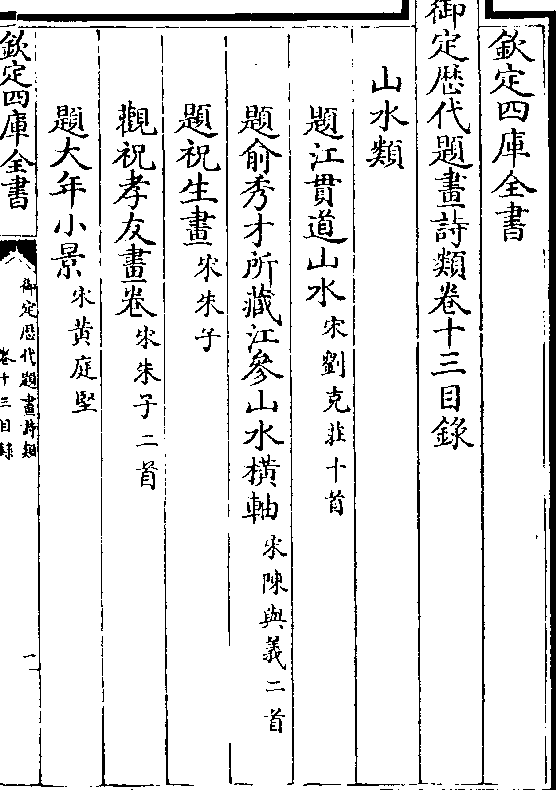 欽定四庫全書
御定歴代題畫詩類卷十三目錄
山水類
題江貫道山水宋劉克莊十首
題俞秀才所藏江參山水橫軸宋陳與義二首
題祝生畫宋朱子
觀祝孝友畫卷宋朱子二首
題大年小景宋黃庭堅
欽定四庫全書
御定歴代題畫詩類
卷十三目錄
一